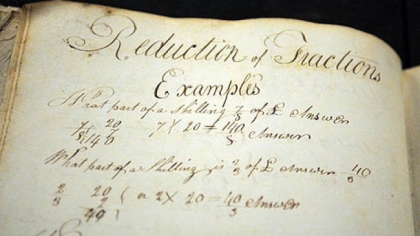 Reduction of Fractions
Examples
What part of a shilling 7/8 of £ Answer
7 20 7 X 20 = 140
8 140 8 Answer
What part of a shilling is 2/3 of £ Answer 40/3
2 20 ( or 2 X 20 = 40 Answer
3 2 ( 3
40